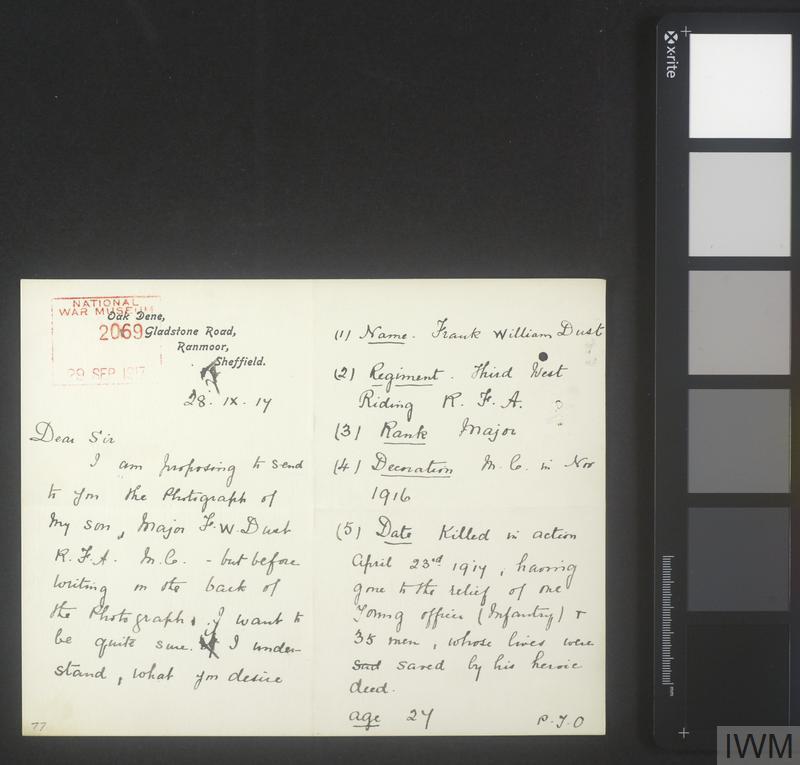 NATIONAL
WAR MUSEUM
2069
29 SEP 1917
Oak Dene,
Gladstone Road,
Ranmoor,
Sheffield.
28. IX. 17
Dear Sir
I am proposing to send
to you the Photograph of
my son, Major F. W. Dust
R. F. A. M. C. - but before
writing on the back of
the Photograph, I want to
be quite sure. I under-
stand, what you desire
77
(1) Name. Frank William Dust
(2) Regiment. Third West
Riding R. F. A.
(3) Rank Major
(4) Decoration M. C. in Nov
1916
(5) Date Killed in action
April 23rd 1917, having
gone to the relief of one
Young officer (Infantry) +
35 men, whose lives were
saved by his heroic
deed.
age 27
P. T. O
x·rite
mm
IWM